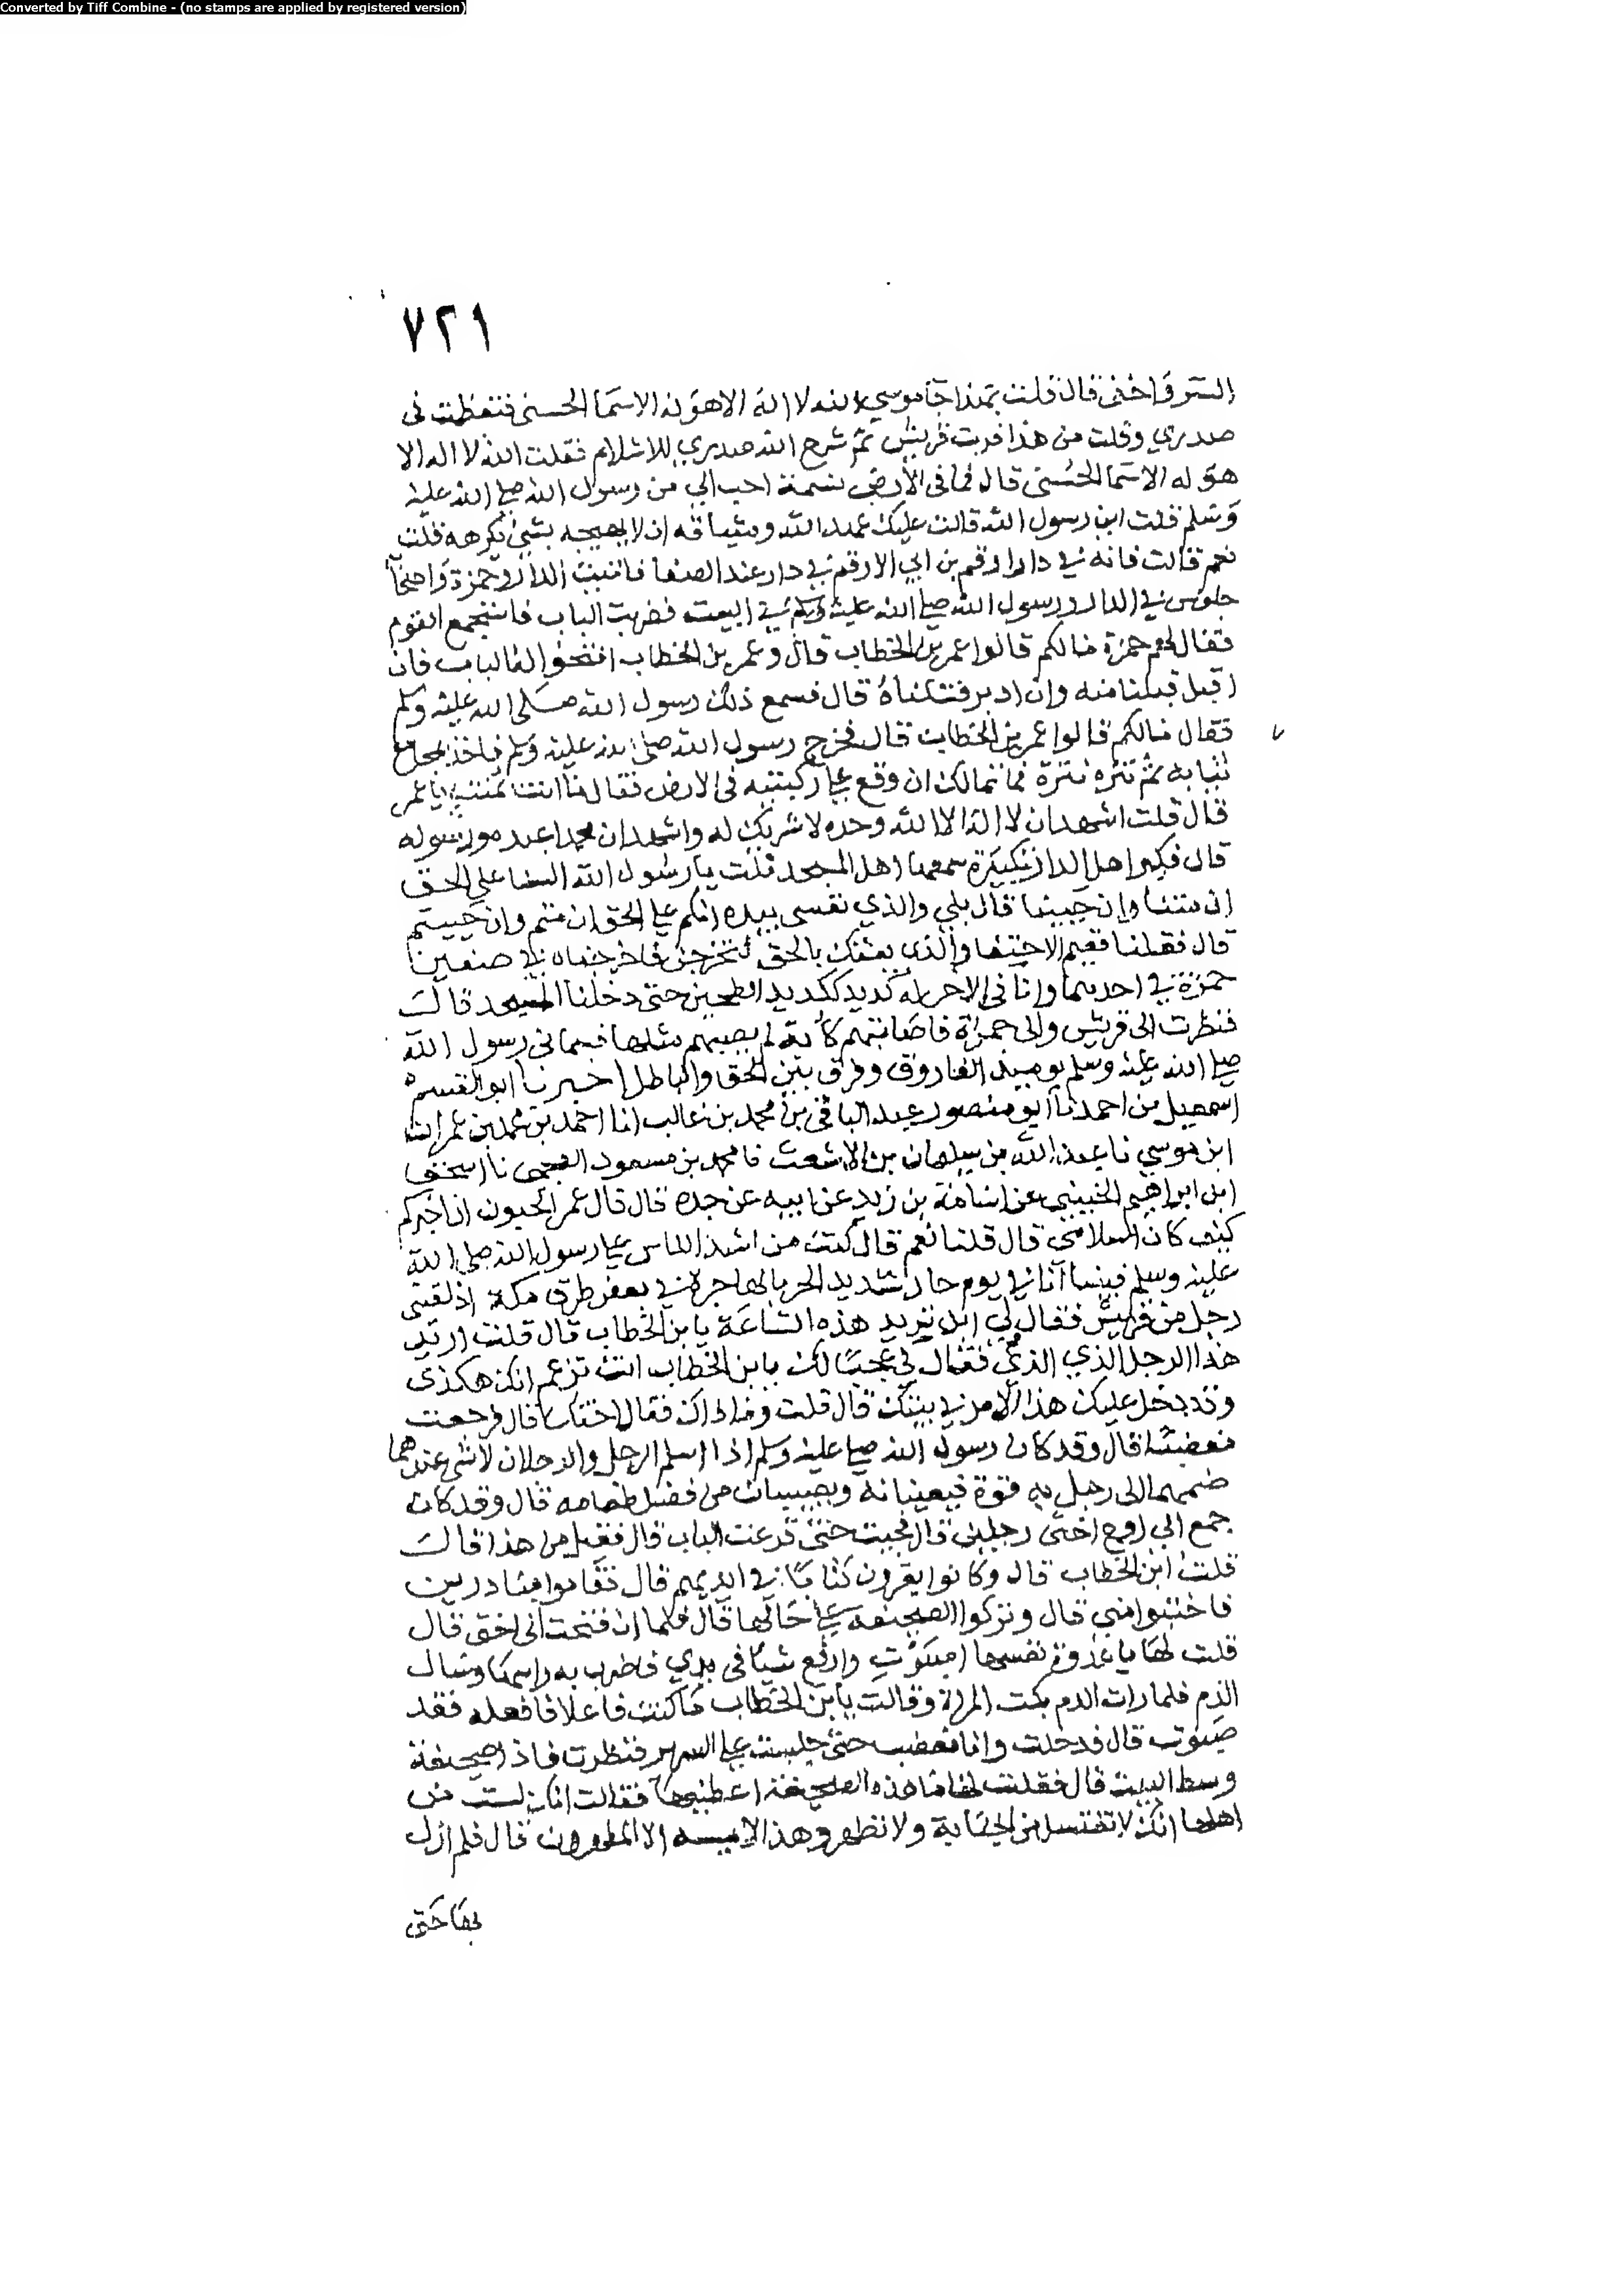 Converted by Tiff Combine - (no stamps are applied by registered version)
٧٢١
السر واخفى قال قلت بهذا جا موسي الله لا اله الا هو له الاسما الحسنى فتعظمت فى
صدري وقلت من هذا فرت قريش ثم شرح الله صدري للاسلام فقلت الله لا اله الا
هو له الاسما الحسنى قال فما فى الارض نسمة احب الي من رسول الله صلى الله عليه
وسلم قلت اين رسول الله قالت عليك عهد الله وميثاقه ان لا يهيجه بشي يكرهه قلت
نعم قالت فانه في دار ارقم بن ابي الارقم في دار عند الصفا فاتيت الدار وحمزة واصحابه
جلوس في الدار ورسول الله صلى الله عليه وسلم في البيت فضربت الباب فاستجمع القوم
فقال لهم حمزة مالكم قالوا عمر بن الخطاب قال وعمر بن الخطاب افتحوا له الباب فان
اقبل قبلنا منه وان ادبر قتلناه قال فسمع ذلك رسول الله صلى الله عليه وسلم
فقال مالكم قالوا عمر بن الخطاب قال فخرج رسول الله صلى الله عليه وسلم فاخذ بمجامع
ثيابه ثم نتره نترة فما تمالك ان وقع على ركبتيه فى الارض فقال ما انت بمنته يا عمر
قال قلت اشهد ان لا اله الا الله وحده لا شريك له واشهد ان محمدا عبده ورسوله
قال فكبر اهل الدار تكبيرة سمعها اهل المسجد قلت يا رسول الله السنا علي الحق
ان متنا وان حيينا قال بلي والذي نفسى بيده انكم على الحق ان متم وان حييتم
قال فقلنا ففيم الاختفا والذي بعثك بالحق لتخرجن فاخرجناه في صفين
حمزة في احدهما وانا فى الاخر له كديد ككديد الطحين حتى دخلنا المسجد قال
فنظرت الى قريش والى حمزة فاصابتهم كآبة لم يصبهم مثلها فسماني رسول الله
صلى الله عليه وسلم يوميذ الفاروق وفرق بين الحق والباطل اخبرنا ابو القسم
اسمعيل بن احمد نا ابو منصور عبد الباقى بن محمد بن غالب انا احمد بن محمد بن عمران
ابن موسي نا عبد الله بن سليمان بن الاشعث نا محمد بن مسعود العجمى نا اسحق
ابن ابراهيم الحنينى عن اسامة بن زيد عن ابيه عن جده قال قال عمر اتحبون ان اخبركم
كيف كان اسلامى قال قلنا نعم قال كنت من اشد الناس على رسول الله صلى الله
عليه وسلم فبينما انا في يوم حار شديد الحر بالهاجرة في بعض طرق مكة اذ لقينى
رجل من قريش فقال لي اين تريد هذه الساعة يا بن الخطاب قال قلت اريد
هذا الرجل الذي الذي فقال لي عجبا لك يا بن الخطاب انت تزعم انك هكذى
وقد دخل عليك هذا الامر في بيتك قال قلت وما ذاك فقال اختك قال فرجعت
مغضبا قال وقد كان رسول الله صلى عليه وسلم اذا اسلم الرجل والرجلان لا شى عندهما
ضمهما الى رجل به قوة فيعينانه ويصيبان من فضل طعامه قال وقد كان
جمع الى زوج اختى رجلين قال فجيت حتى قرعت الباب قال فقيل من هذا قال
قلت ابن الخطاب قال وكانوا يقرون كتابا في ايديهم قال فقاموا مبادرين
فاختبوا منى قال وتركوا الصحيفة على حالها قال فلما ان فتحت لى اختى قال
قلت لها يا عدوة نفسها اصبوت وارفع شيا فى يدي فاضرب به راسها وسال
الدم فلما رات الدم بكت المراة وقالت يا بن الخطاب ما كنت فاعلا فافعله فقد
صبوت قال فدخلت وانا مغضب حتى جلست على السرير فنظرت فاذا صحيفة
وسط البيت قال فقلت لها ما هذه الصحيفة اعطينيها فقالت انك لست من
اهلها انك لا تغتسل من الجنابة ولا تطهر وهذا لا يمسه الا المطهرون قال فلم ازل
بها حتى